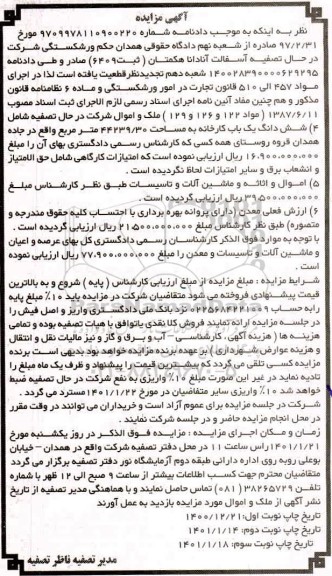 آگهی مزایده
نظر به اینکه به موجب دادنامه شماره ۹۷۰۹۹۷۸۱۱۰۹۰۰۲۲۰ مورخ
۹۷/۲/۳۱ صادره از شعبه نهم دادگاه حقوقی همدان حکم ورشکستگی شرکت
در حال تصفیه آسفالت آنادانا هکمتان ( ثبت۶۴۰۹) صادر و طی دادنامه
۱۴۰۰۲۸۳۹۰۰۰۰۶۲۹۲۹۵ شعبه دهم تجدیدنظر قطعیت یافته است لذا در اجرای
مواد ۴۵۷ الی ۵۱۰ قانون تجارت در امور ورشکستگی و ماده ۶ نظامنامه قانون
مذکور و هم چنین مفاد آئین نامه اجرای اسناد رسمی لازم الاجرای ثبت اسناد مصوب
۱۳۸۷/۶/۱۱ ( مواد ۱۲۲ و ۱۲۶ و ۱۲۹ ) ملک و اموال شرکت در حال تصفیه شامل
۴) شش دانگ یک باب کارخانه به مساحت ۴۴۲۳۹/۳۰ متر مربع واقع در جاده
همدان قروه روستای همه کسی که کارشناس رسمی دادگستری بهای آن را مبلغ
۱۶.۹۰۰.۰۰۰.۰۰۰ ریال ارزیابی نموده است که امتیازات کارگاهی شامل حق الامتیاز
و انشعاب برق و سایر امتیازات لحاظ نگردیده است .
۵) اموال و اثاثه و ماشین آلات و تاسیسات طبق نظر کارشناس مبلغ
۳۹.۵۰۰.۰۰۰.۰۰۰ ریال ارزیابی گردیده است .
۶) ارزش فعلی معدن (دارای پروانه بهره برداری با احتساب کلیه حقوق مندرجه و
متصوره) طبق نظر کارشناس مبلغ ۲۱.۵۰۰.۰۰۰.۰۰۰ ریال ارزیابی گردیده است .
با توجه به موارد فوق الذکر کارشناسان رسمی دادگستری کل بهای عرصه و اعیان
و ماشین آلات و تاسیسات و معدن را مبلغ ۷۷.۹۰۰.۰۰۰.۰۰۰ ریال ارزیابی نموده
است .
شرایط مزایده : مبلغ مزایده از مبلغ ارزیابی کارشناس ( پایه ) شروع و به بالاترین
قیمت پیشنهادی فروخته می شود متقاضیان شرکت در مزایده باید ۱۰% مبلغ پایه
رابه حساب نزد بانک ملی دادگستری واریز و اصل فیش را
در جلسه مزایده ارائه نمایند فروش کلا نقدی یا توافق با هیات تصفیه بوده و تمامی
هزینه ها ( هزینه آگهی ، کارشناسی – آب و برق و گاز و نیز مالیات نقل و انتقال
و هزینه عوارض شهرداری ) بر عهده برنده مزایده خواهد بود بدیهی است برنده
مزایده کسی تلقی می گردد که بیشترین قیمت را پیشنهاد و ظرف یک ماه مبلغ را
تادیه نماید در غیر این صورت مبلغ ۱۰% واریزی به نفع شرکت در حال تصفیه ضبط
خواهد شد ۱۰% واریزی سایر متقاضیان در مورخ ۱۴۰۱/۱/۲۲ مسترد می گردد .
شرکت در جلسه مزایده برای عموم آزاد است و خریداران می توانند در وقت مقرر
در محل انجام مزایده حاضر و در جلسه شرکت نمایند .
زمان و مکان اجرای مزایده : مزایده فوق الذکر در روز یکشنبه مورخ
۱۴۰۱/۱/۲۱ راس ساعت ۱۱ در محل دفتر تصفیه شرکت واقع در همدان – خیابان
بوعلی روبه روی اداره دارائی طبقه دوم آزمایشگاه نور دفتر تصفیه برگزار می گردد
متقاضیان محترم جهت کسب اطلاعات بیشتر از ساعت ۹ صبح الی ۱۲ ظهر با شماره
تلفن ۳۸۲۶۵۷۲۹ (۰۸۱) تماس حاصل نمایند و با هماهنگی مدیر تصفیه از تاریخ
نشر آگهی از ملک و اموال مورد مزایده بازدید به عمل آورند
تاریخ چاپ نوبت اول: ۱۴۰۰/۱۲/۲۱
تاریخ چاپ نوبت دوم: ۱۴۰۱/۱/۱۴
تاریخ چاپ نوبت سوم: ۱۴۰۱/۱/۱۸
مدیر تصفیه ناظر تصفیه